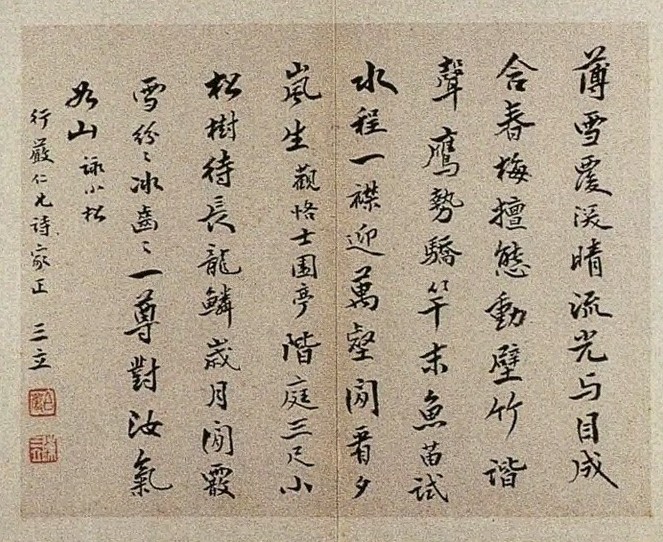 薄雪霞浮晴流光与目成
含春梅擅態動壁竹諧
聲鷹勢驕竿末魚苗試
水程一襟迎萬壑閒看夕
嵐生 觀恪士園亭 階庭三尺小
松樹待長龍鱗歲月閒霰
雪紛〻冰齒〻一尊對汝氣
如山 詠小松
行嚴仁兄詩家正 三立